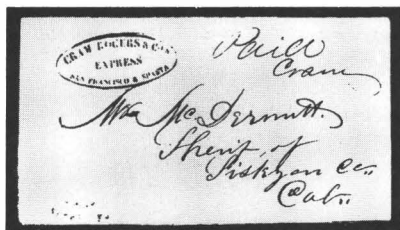 CRAM ROGERS & CO'S
EXPRESS
SAN FRANCISCO & SHASTA
Paid
Cram
Wm McDermitt.
Sherif of
Siskyou Co.
Cal.